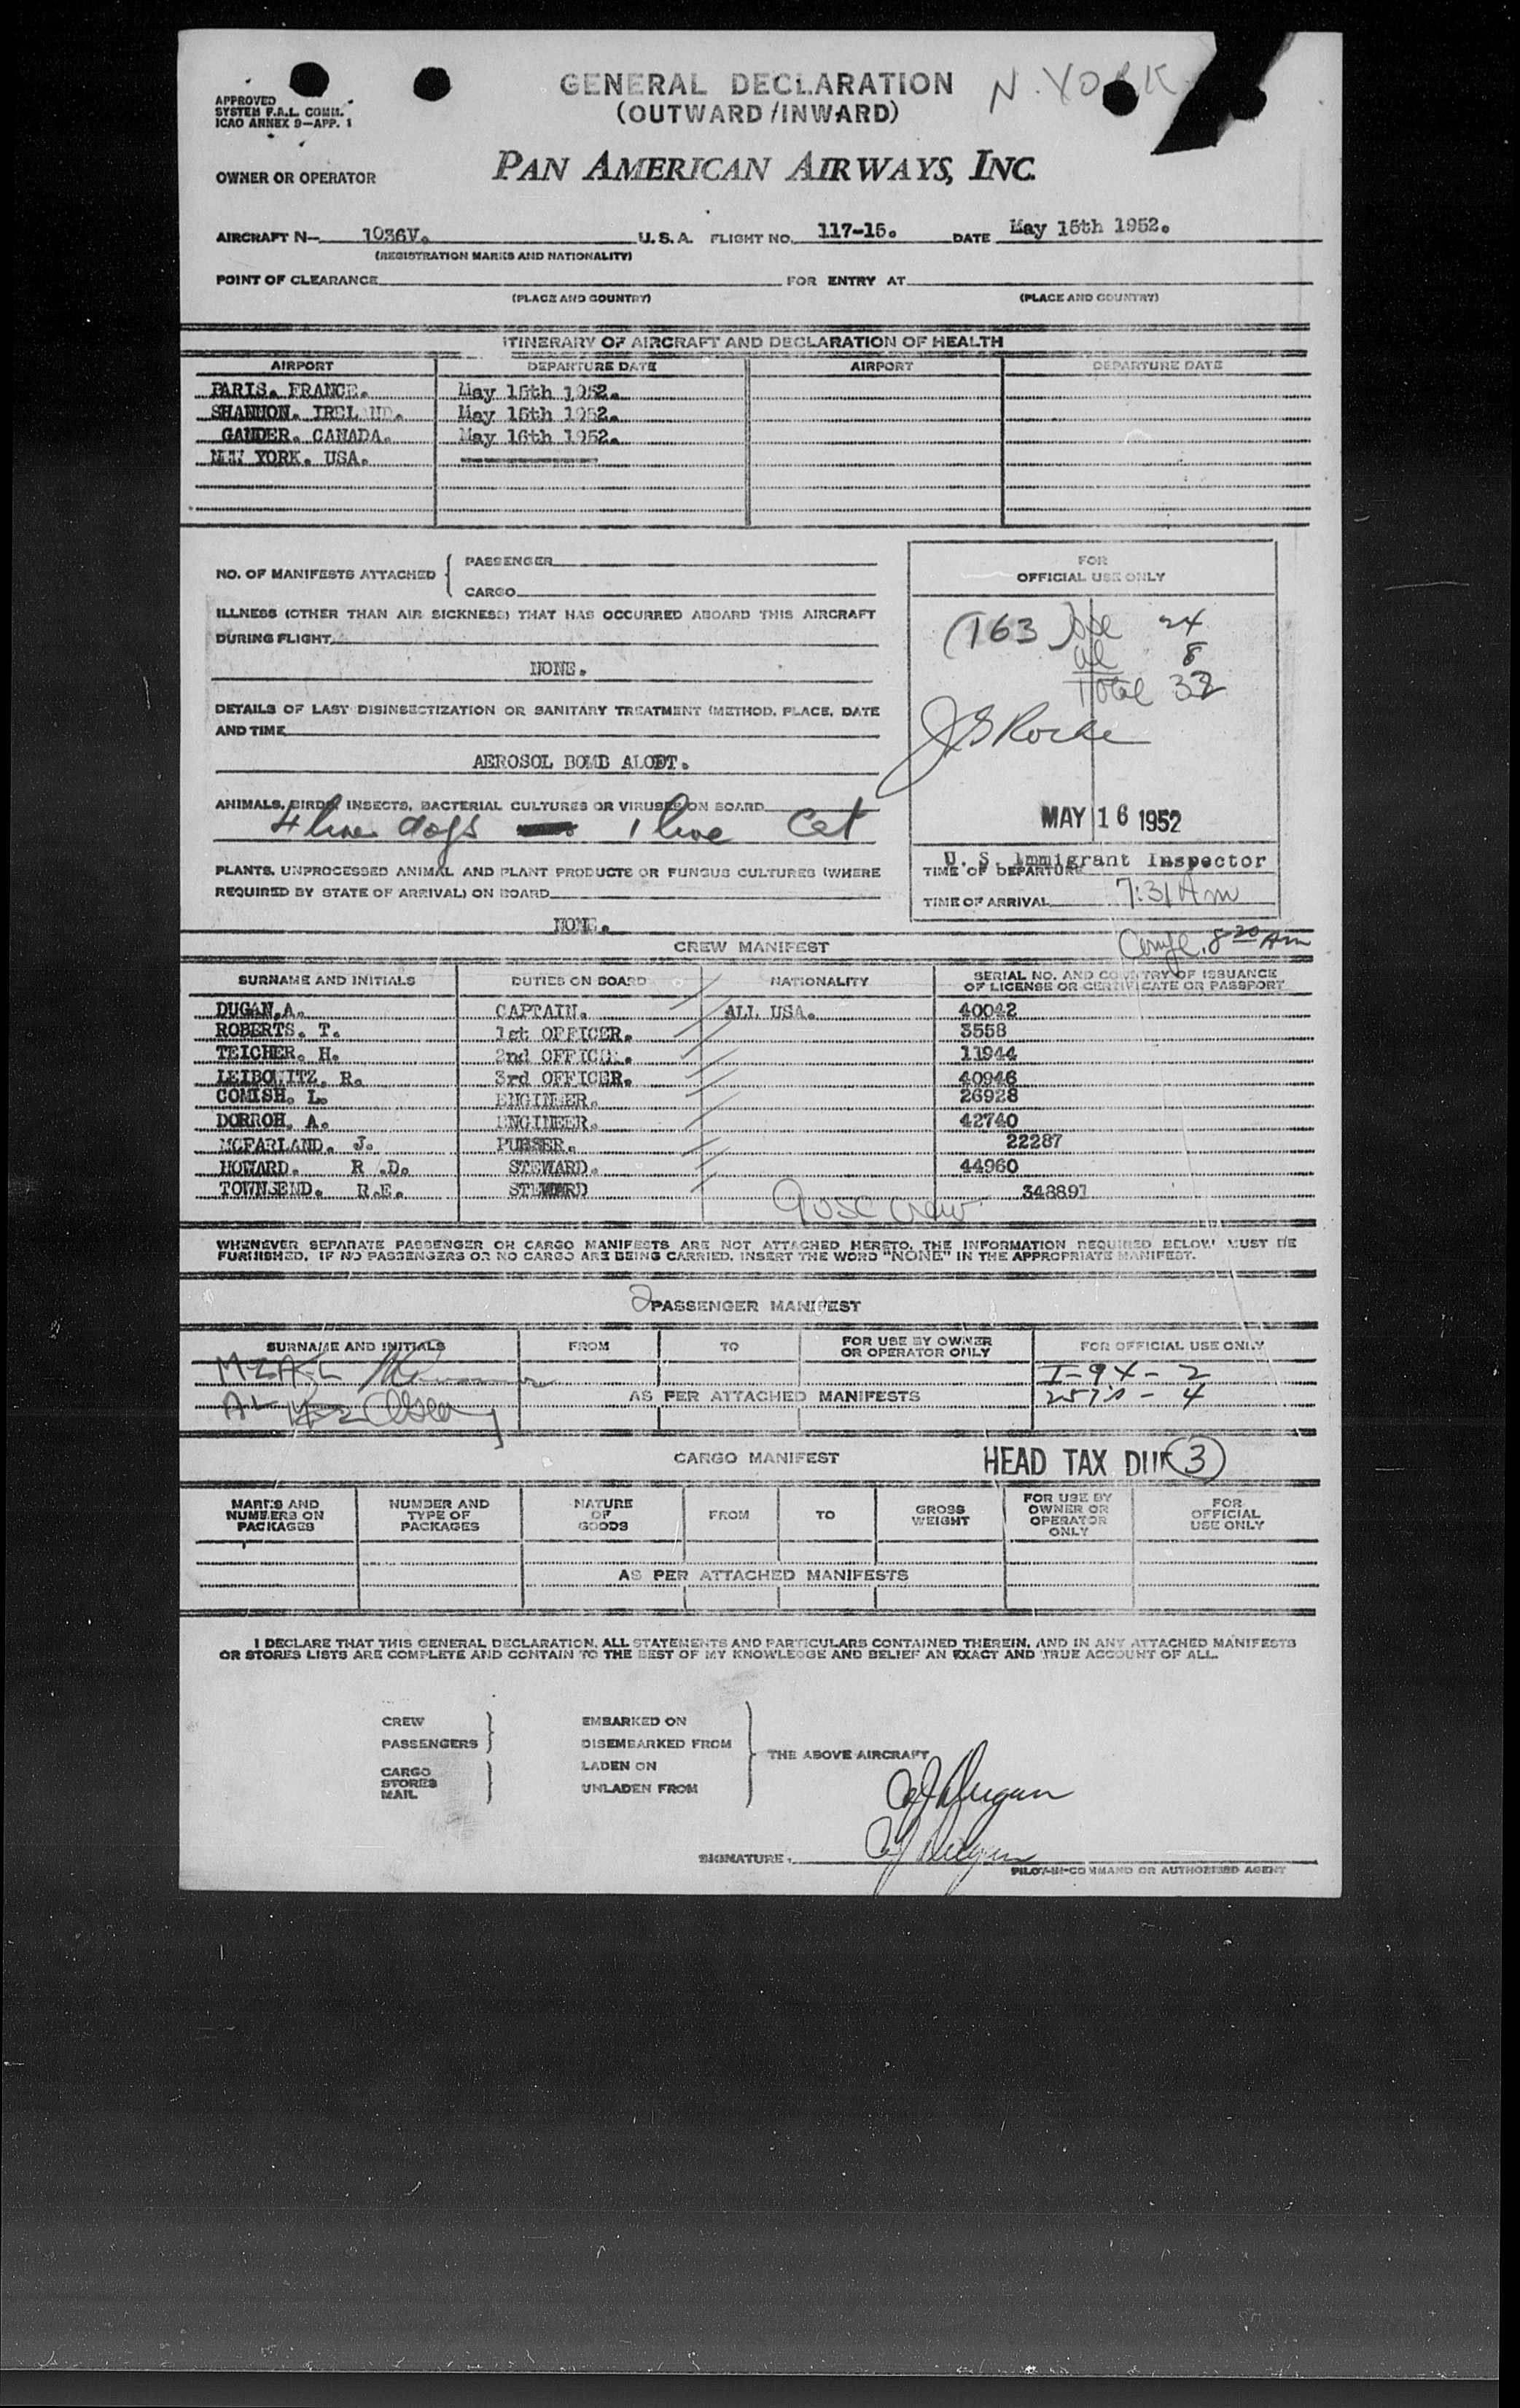 GENERAL DECLARATION
(OUTWARD/INWARD)
N. YORK
APPROVED
SYSTEM F.A.L. COMM.
ICAO ANNEX 9—APP. 1
OWNER OR OPERATOR PAN AMERICAN AIRWAYS, INC.
AIRCRAFT N— 1036V. U.S.A. FLIGHT NO. 117-15. DATE May 15th 1952.
(REGISTRATION MARKS AND NATIONALITY)
POINT OF CLEARANCE FOR ENTRY AT
(PLACE AND COUNTRY) (PLACE AND COUNTRY)
ITINERARY OF AIRCRAFT AND DECLARATION OF HEALTH
AIRPORT DEPARTURE DATE AIRPORT DEPARTURE DATE
PARIS. FRANCE. May 15th 1952.
SHANNON. IRELAND. May 15th 1952.
GANDER. CANADA. May 16th 1952.
NEW YORK. USA.
NO. OF MANIFESTS ATTACHED { PASSENGER
CARGO
ILLNESS (OTHER THAN AIR SICKNESS) THAT HAS OCCURRED ABOARD THIS AIRCRAFT
DURING FLIGHT
NONE.
DETAILS OF LAST DISINSECTIZATION OR SANITARY TREATMENT (METHOD, PLACE, DATE
AND TIME
AEROSOL BOMB ALOFT.
ANIMALS, BIRDS, INSECTS, BACTERIAL CULTURES OR VIRUSES ON BOARD
4 live dogs 1 live Cat
PLANTS, UNPROCESSED ANIMAL AND PLANT PRODUCTS OR FUNGUS CULTURES (WHERE
REQUIRED BY STATE OF ARRIVAL) ON BOARD
NONE.
FOR
OFFICIAL USE ONLY
(163) USC 24
al 8
Total 32
MAY 16 1952
U. S. Immigrant Inspector
TIME OF DEPARTURE
TIME OF ARRIVAL 7:31 Am
8 20 Am
CREW MANIFEST
SURNAME AND INITIALS DUTIES ON BOARD NATIONALITY SERIAL NO. AND COUNTRY OF ISSUANCE
OF LICENSE OR CERTIFICATE OR PASSPORT
DUGAN,A. CAPTAIN. ALL USA. 40042
ROBERTS. T. 1st OFFICER. 3558
TEICHER. H. 2nd OFFICER. 11944
LEIBOWITZ. R. 3rd OFFICER. 40946
COMISH. L. ENGINEER. 26928
DORROH. A. ENGINEER. 42740
MCFARLAND. J. PURSER. 22287
HOWARD. R .D. STEWARD. 44960
TOWNSEND. R.E. STEWARD 348897
9 USC Crew
WHENEVER SEPARATE PASSENGER OR CARGO MANIFESTS ARE NOT ATTACHED HERETO, THE INFORMATION REQUIRED BELOW MUST BE
FURNISHED. IF NO PASSENGERS OR NO CARGO ARE BEING CARRIED, INSERT THE WORD "NONE" IN THE APPROPRIATE MANIFEST.
2 PASSENGER MANIFEST
SURNAME AND INITIALS FROM TO FOR USE BY OWNER
OR OPERATOR ONLY FOR OFFICIAL USE ONLY
I-94-2
AS PER ATTACHED MANIFESTS
257's - 4
CARGO MANIFEST
HEAD TAX DUE 3
MARKS AND
NUMBERS ON
PACKAGES
NUMBER AND
TYPE OF
PACKAGES
NATURE
OF
GOODS
FROM
TO
GROSS
WEIGHT
FOR USE BY
OWNER OR
OPERATOR
ONLY
FOR
OFFICIAL
USE ONLY
AS PER ATTACHED MANIFESTS
I DECLARE THAT THIS GENERAL DECLARATION, ALL STATEMENTS AND PARTICULARS CONTAINED THEREIN, AND IN ANY ATTACHED MANIFESTS
OR STORES LISTS ARE COMPLETE AND CONTAIN TO THE BEST OF MY KNOWLEDGE AND BELIEF AN EXACT AND TRUE ACCOUNT OF ALL.
CREW
PASSENGERS
CARGO
STORES
MAIL
EMBARKED ON
DISEMBARKED FROM
LADEN ON
UNLADEN FROM
THE ABOVE AIRCRAFT
AJ Dugan
SIGNATURE. AJ Dugan
PILOT-IN-COMMAND OR AUTHORIZED AGENT